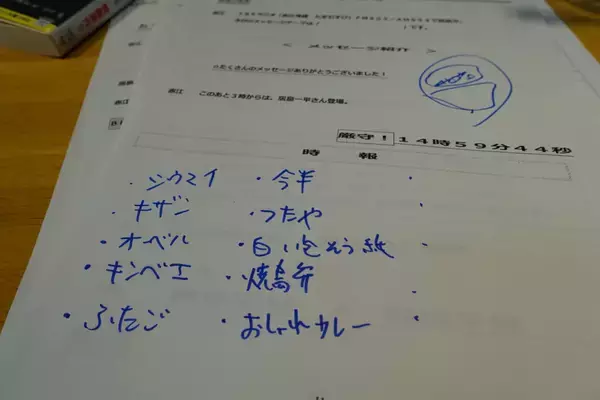 < メッセージ紹介 >
たくさんのメッセージありがとうございました!
このあと3時からは、飯島一平さん登場。
厳守! 14時59分44秒
時報
・シウマイ ・今半 ・
・キザン ・つたや ・
・オーベル ・白い包そう紙 ・
・キンベエ ・焼鳥弁 ・
・ふたご ・おしゃれカレー ・